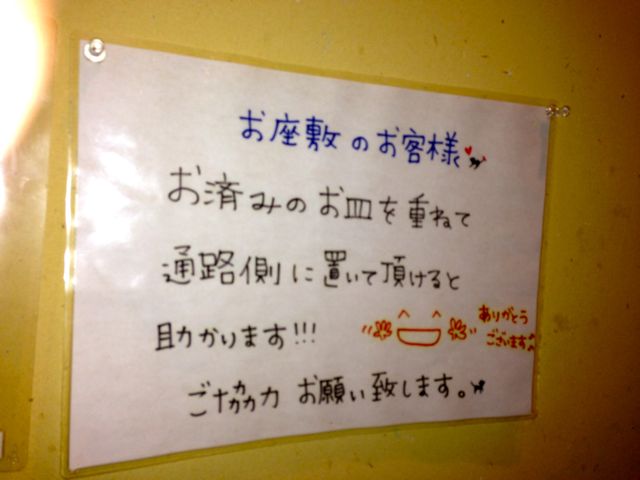 お座敷のお客様
お済みのお皿を重ねて
通路側に置いて頂けると
助かります!!!
ありがとう
ございます
ご協力お願い致します。